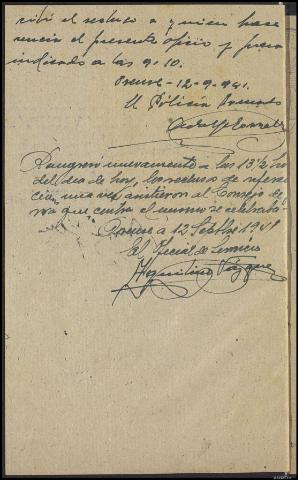 cibí el recluso a quien hace
rencia el presente oficio y fuera
indicado a las 9-10.
Orense-12-9-941.
El Policía Armado
Reingresó nuevamente a las 13½ ho
del día de hoy, los reclusos de referen
cia, una vez asistieron al Consejo de
rra que contra el mismo se celebraba.
Orense a 12 Septbre 1941
El Oficial de Servicio
Vázquez